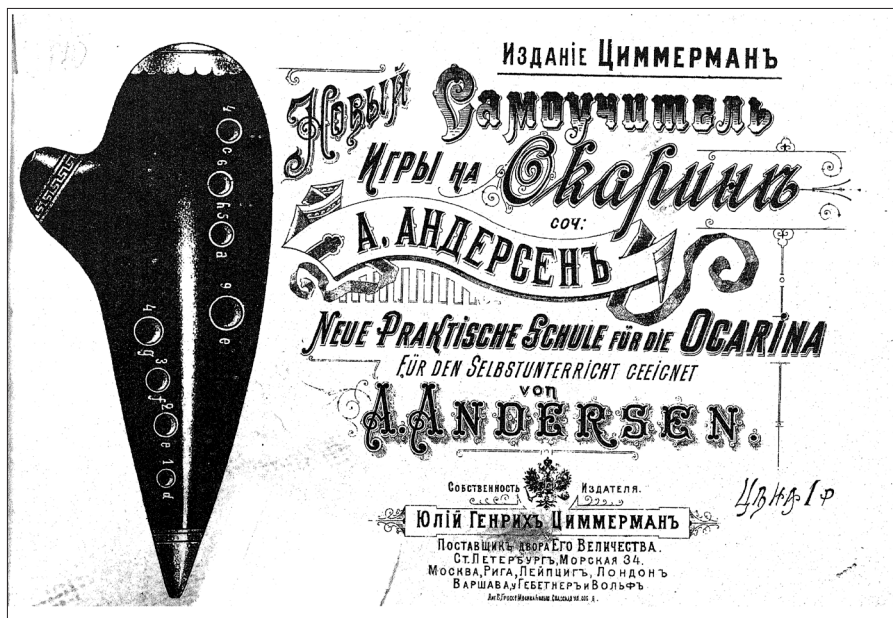 Изданіе Циммерманъ
Новый Самоучитель
Игры на Окаринѣ
соч:
А. Андерсенъ
Neue Praktische Schule für die Ocarina
für den Selbstunterricht geeignet
von
A. Andersen.
Собственность Издателя.
Юлій Генрихъ Циммерманъ
Поставщикъ двора Его Величества.
Ст. Петербургъ, Морская 34.
Москва, Рига, Лейпцигъ, Лондонъ
Варшава, у Гебетнеръ и Вольфъ
Цѣна 1 р
4
c 6
h 5
a
9
e
4 g
3 f
2 e
1 d